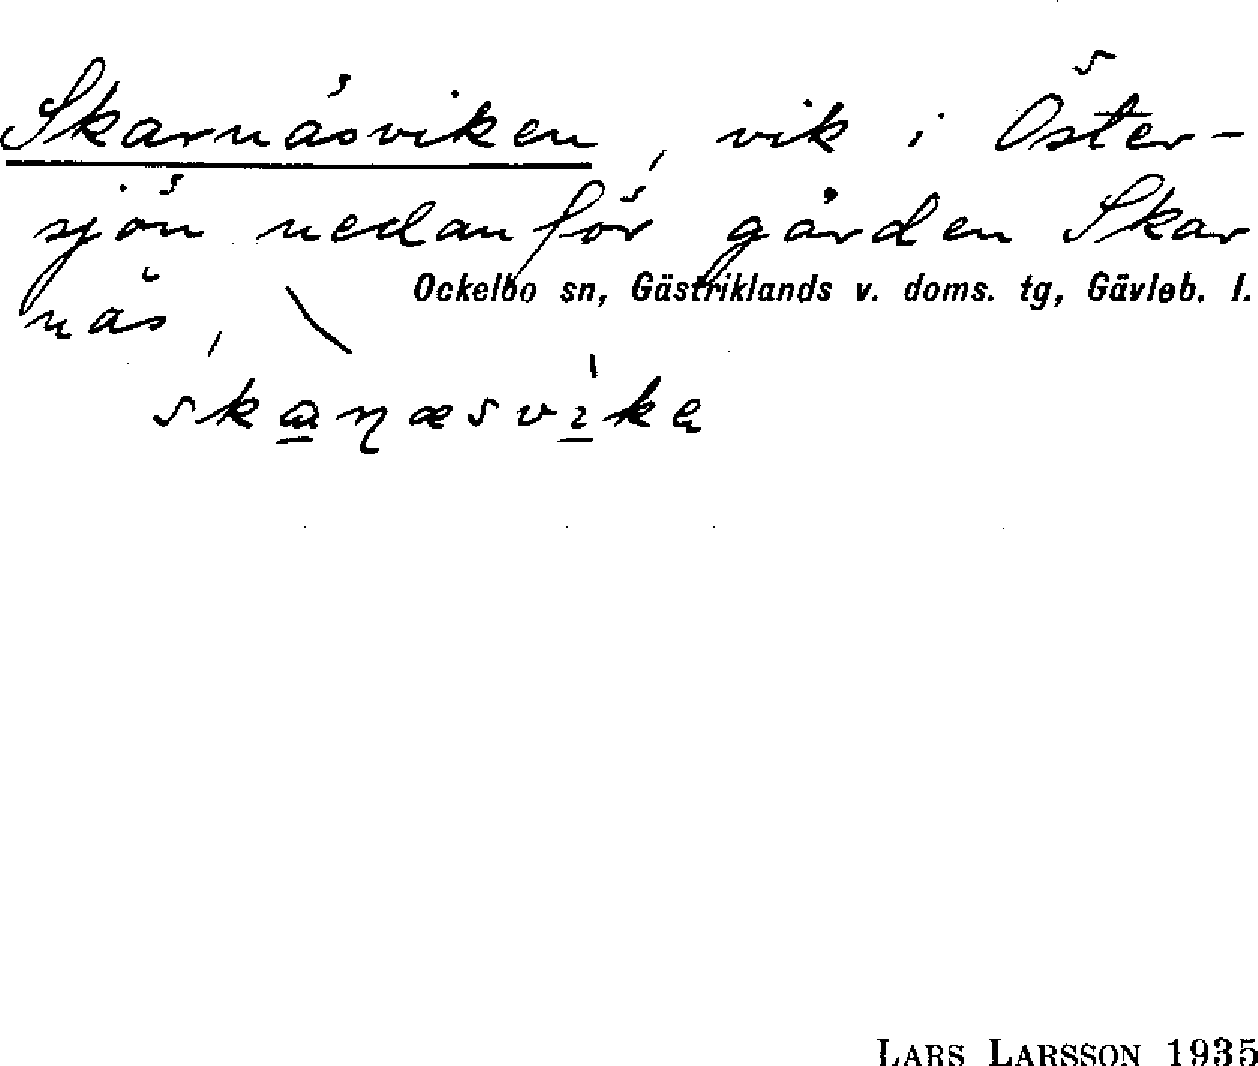 Skarnäsviken, vik i Öster-
sjön nedanför gården Skar
näs,
Ockelbo sn, Gästriklands v. doms. tg, Gävleb. l.
skaɳæsvika
LARS LARSSON 1935